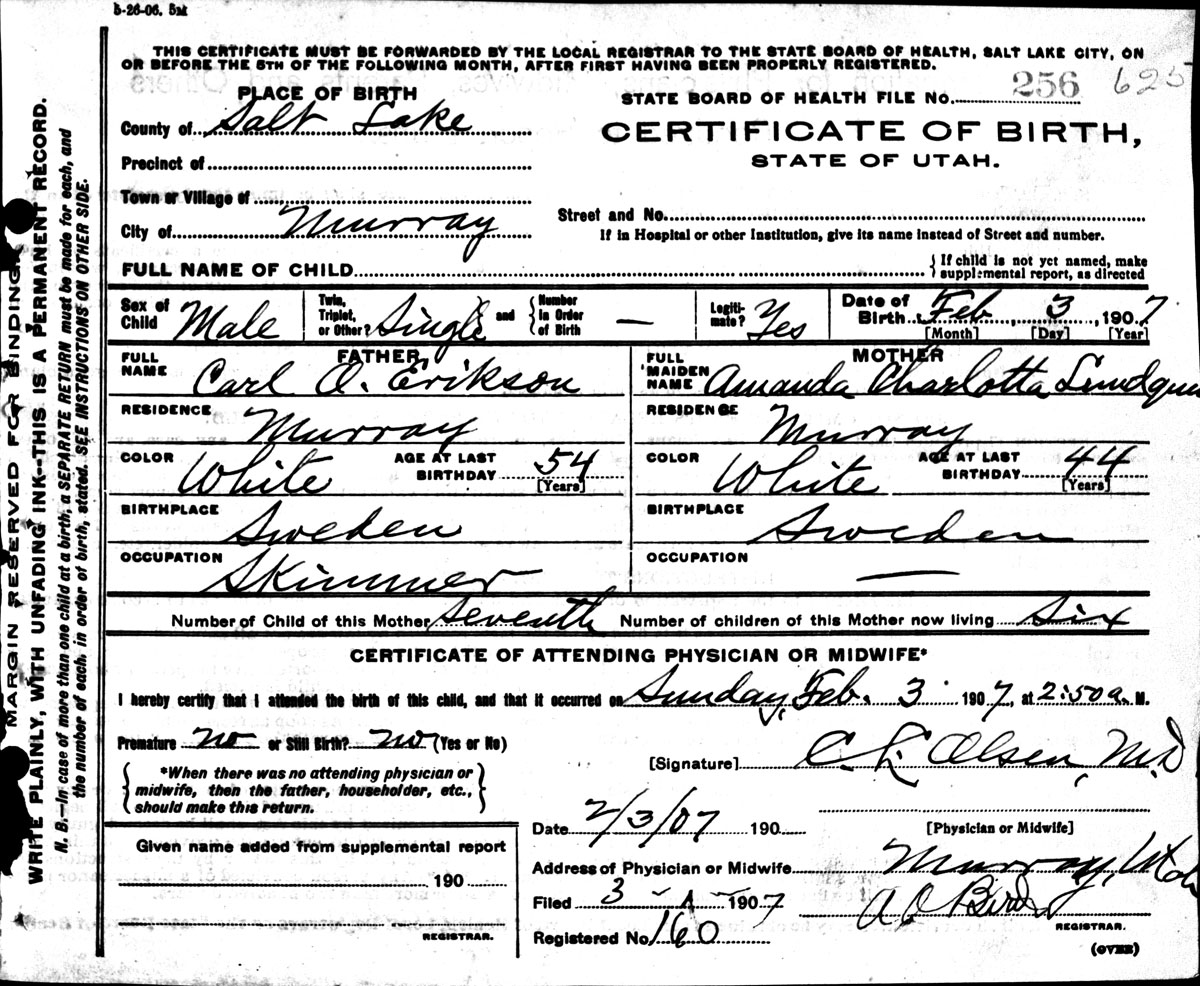 5-26-06. 5M
THIS CERTIFICATE MUST BE FORWARDED BY THE LOCAL REGISTRAR TO THE STATE BOARD OF HEALTH, SALT LAKE CITY, ON
OR BEFORE THE 5TH OF THE FOLLOWING MONTH, AFTER FIRST HAVING BEEN PROPERLY REGISTERED.
PLACE OF BIRTH
STATE BOARD OF HEALTH FILE NO. 256 625
County of Salt Lake
CERTIFICATE OF BIRTH,
STATE OF UTAH.
Precinct of
Town or Village of
Street and No.
City of Murray
If in Hospital or other Institution, give its name instead of Street and number.
FULL NAME OF CHILD
{ If child is not yet named, make
supplemental report, as directed
Sex of Child Male
Twin, Triplet, or Other? Single and { Number in Order of Birth —
Legiti-mate? Yes
Date of Birth Feb 3, 1907
[Month] [Day] [Year]
FATHER
FULL NAME Carl O. Erikson
MOTHER
FULL MAIDEN NAME Amanda Charlotta
RESIDENCE Murray
RESIDENCE Murray
COLOR White AGE AT LAST BIRTHDAY 54 [Years]
COLOR White AGE AT LAST BIRTHDAY 44 [Years]
BIRTHPLACE Sweden
BIRTHPLACE Sweden
OCCUPATION Skimmer
OCCUPATION —
Number of Child of this Mother Seventh Number of children of this Mother now living Six
CERTIFICATE OF ATTENDING PHYSICIAN OR MIDWIFE*
I hereby certify that I attended the birth of this child, and that it occurred on Sunday, Feb. 3 1907, at 2:50 a. M.
Premature no or Still Birth? no (Yes or No)
[Signature] C. L. Olsen, M.D
*When there was no attending physician or
midwife, then the father, householder, etc.,
should make this return.
Date 2/3/07 190
[Physician or Midwife]
Given name added from supplemental report
190
REGISTRAR.
Address of Physician or Midwife Murray, Utah
Filed 3 - 1 - 1907
REGISTRAR.
Registered No. 160
(OVER)
MARGIN RESERVED FOR BINDING
WRITE PLAINLY, WITH UNFADING INK--THIS IS A PERMANENT RECORD.
N. B.—In case of more than one child at a birth, a SEPARATE RETURN must be made for each, and
the number of each, in order of birth, stated. SEE INSTRUCTIONS ON OTHER SIDE.